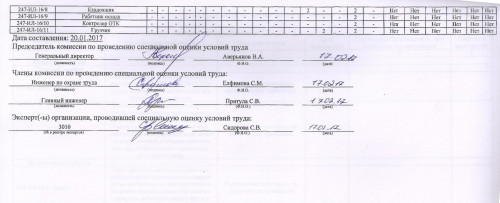 247-ИЛ-16/8 Кладовщик - - - - - - - 2 - - 2 - Нет Нет Нет Нет Нет Нет
247-ИЛ-16/9 Работник склада - - - - - - - - - - 2 - Нет Нет Нет Нет Нет Нет
247-ИЛ-16/10 Контролер ОТК - - - - - - - - - - 2 - Нет Нет Нет Нет Нет Нет
247-ИЛ-16/11 Грузчик - - - - - - - 2 - - 2 - Нет Нет Нет Нет Нет Нет
Дата составления: 20.01.2017
Председатель комиссии по проведению специальной оценки условий труда
Генеральный директор Аверьянов В.А.
(должность) (подпись) (Ф.И.О.) (дата)
Члены комиссии по проведению специальной оценки условий труда:
Инженер по охране труда Елфимова С.М. 17.02.17
(должность) (подпись) (Ф.И.О.) (дата)
Главный инженер Притула С.В. 17.02.17
(должность) (подпись) (Ф.И.О.) (дата)
Эксперт(-ы) организации, проводившей специальную оценку условий труда:
3010 Сидорова С.В.
(№ в реестре экспертов) (подпись) (Ф.И.О.) (дата)